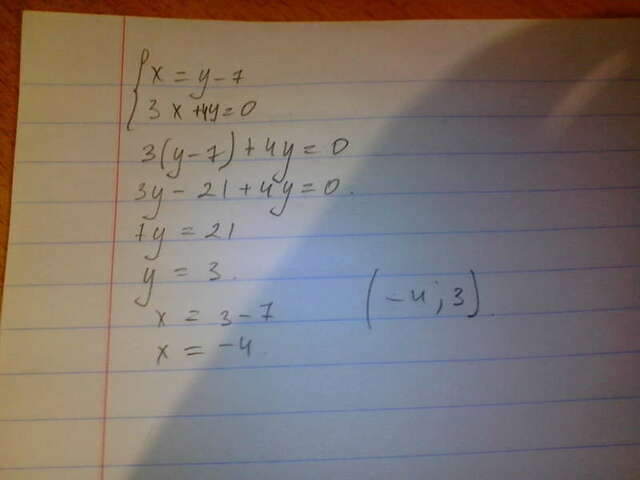 { x = y - 7
3x + 4y = 0
3(y - 7) + 4y = 0
3y - 21 + 4y = 0.
7y = 21
y = 3.
x = 3 - 7
x = -4.
(-4; 3).